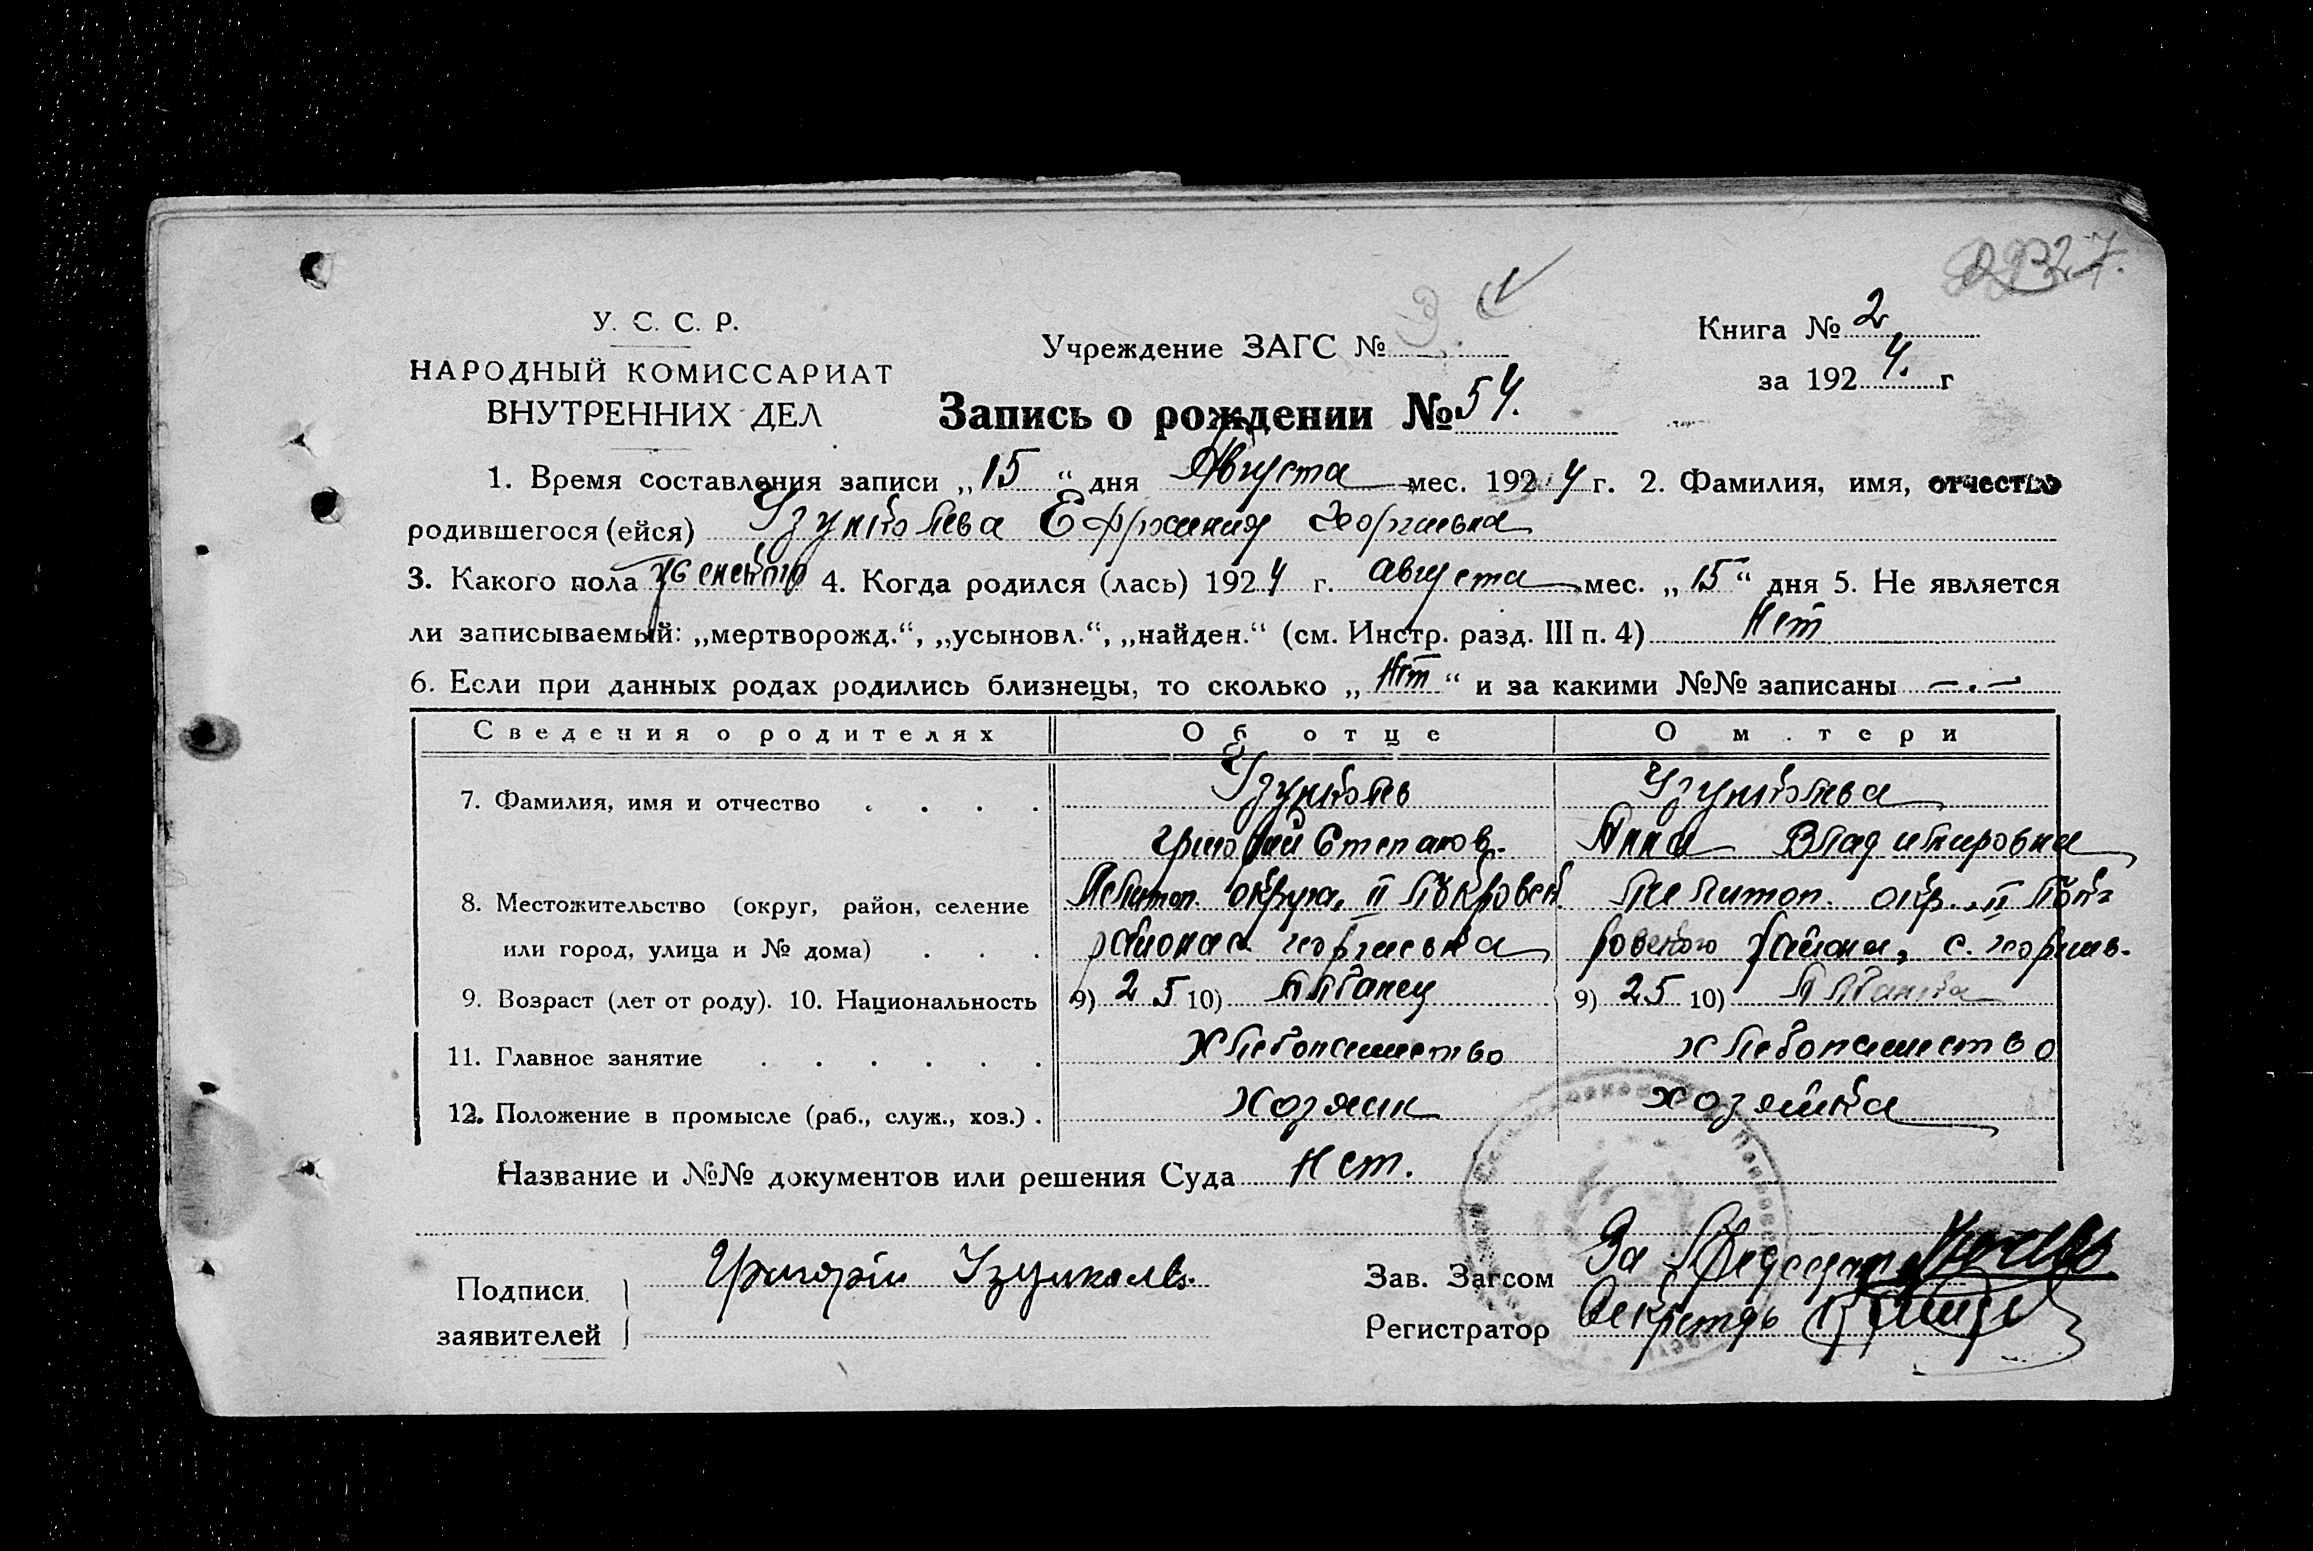 У. С. С. Р.
НАРОДНЫЙ КОМИССАРИАТ
ВНУТРЕННИХ ДЕЛ
Учреждение ЗАГС № 3
Книга № 2
за 1924. г
Запись о рождении № 54.
1. Время составления записи „15“ дня Августа мес. 1924 г. 2. Фамилия, имя, отчество
родившегося (ейся) Узунколева
3. Какого пола женского 4. Когда родился (лась) 1924 г. августа мес. „15“ дня 5. Не является
ли записываемый: „мертворожд.“, „усыновл.“, „найден.“ (см. Инстр. разд. III п. 4) Нет
6. Если при данных родах родились близнецы, то сколько „Нет“ и за какими №№ записаны —.—
Сведения о родителях Об отце О м.тери
7. Фамилия, имя и отчество Узунколь Узунколева
Степанов. Анна Владимировна
8. Местожительство (округ, район, селение Мелитоп. округа, II Покровск Мелитоп. окр. II Пок
или город, улица и № дома) района с. Георгиевка ровского района, с. Георгиев.
9. Возраст (лет от роду). 10. Национальность 9) 25 10) Албанец 9) 25 10) Албанка
11. Главное занятие Хлебопашество хлебопашество
12. Положение в промысле (раб., служ., хоз.) Хозяин хозяйка
Название и №№ документов или решения Суда Нет.
Подписи
заявителей
Григорiй Узунколь
Зав. Загсом За
Регистратор Секретарь